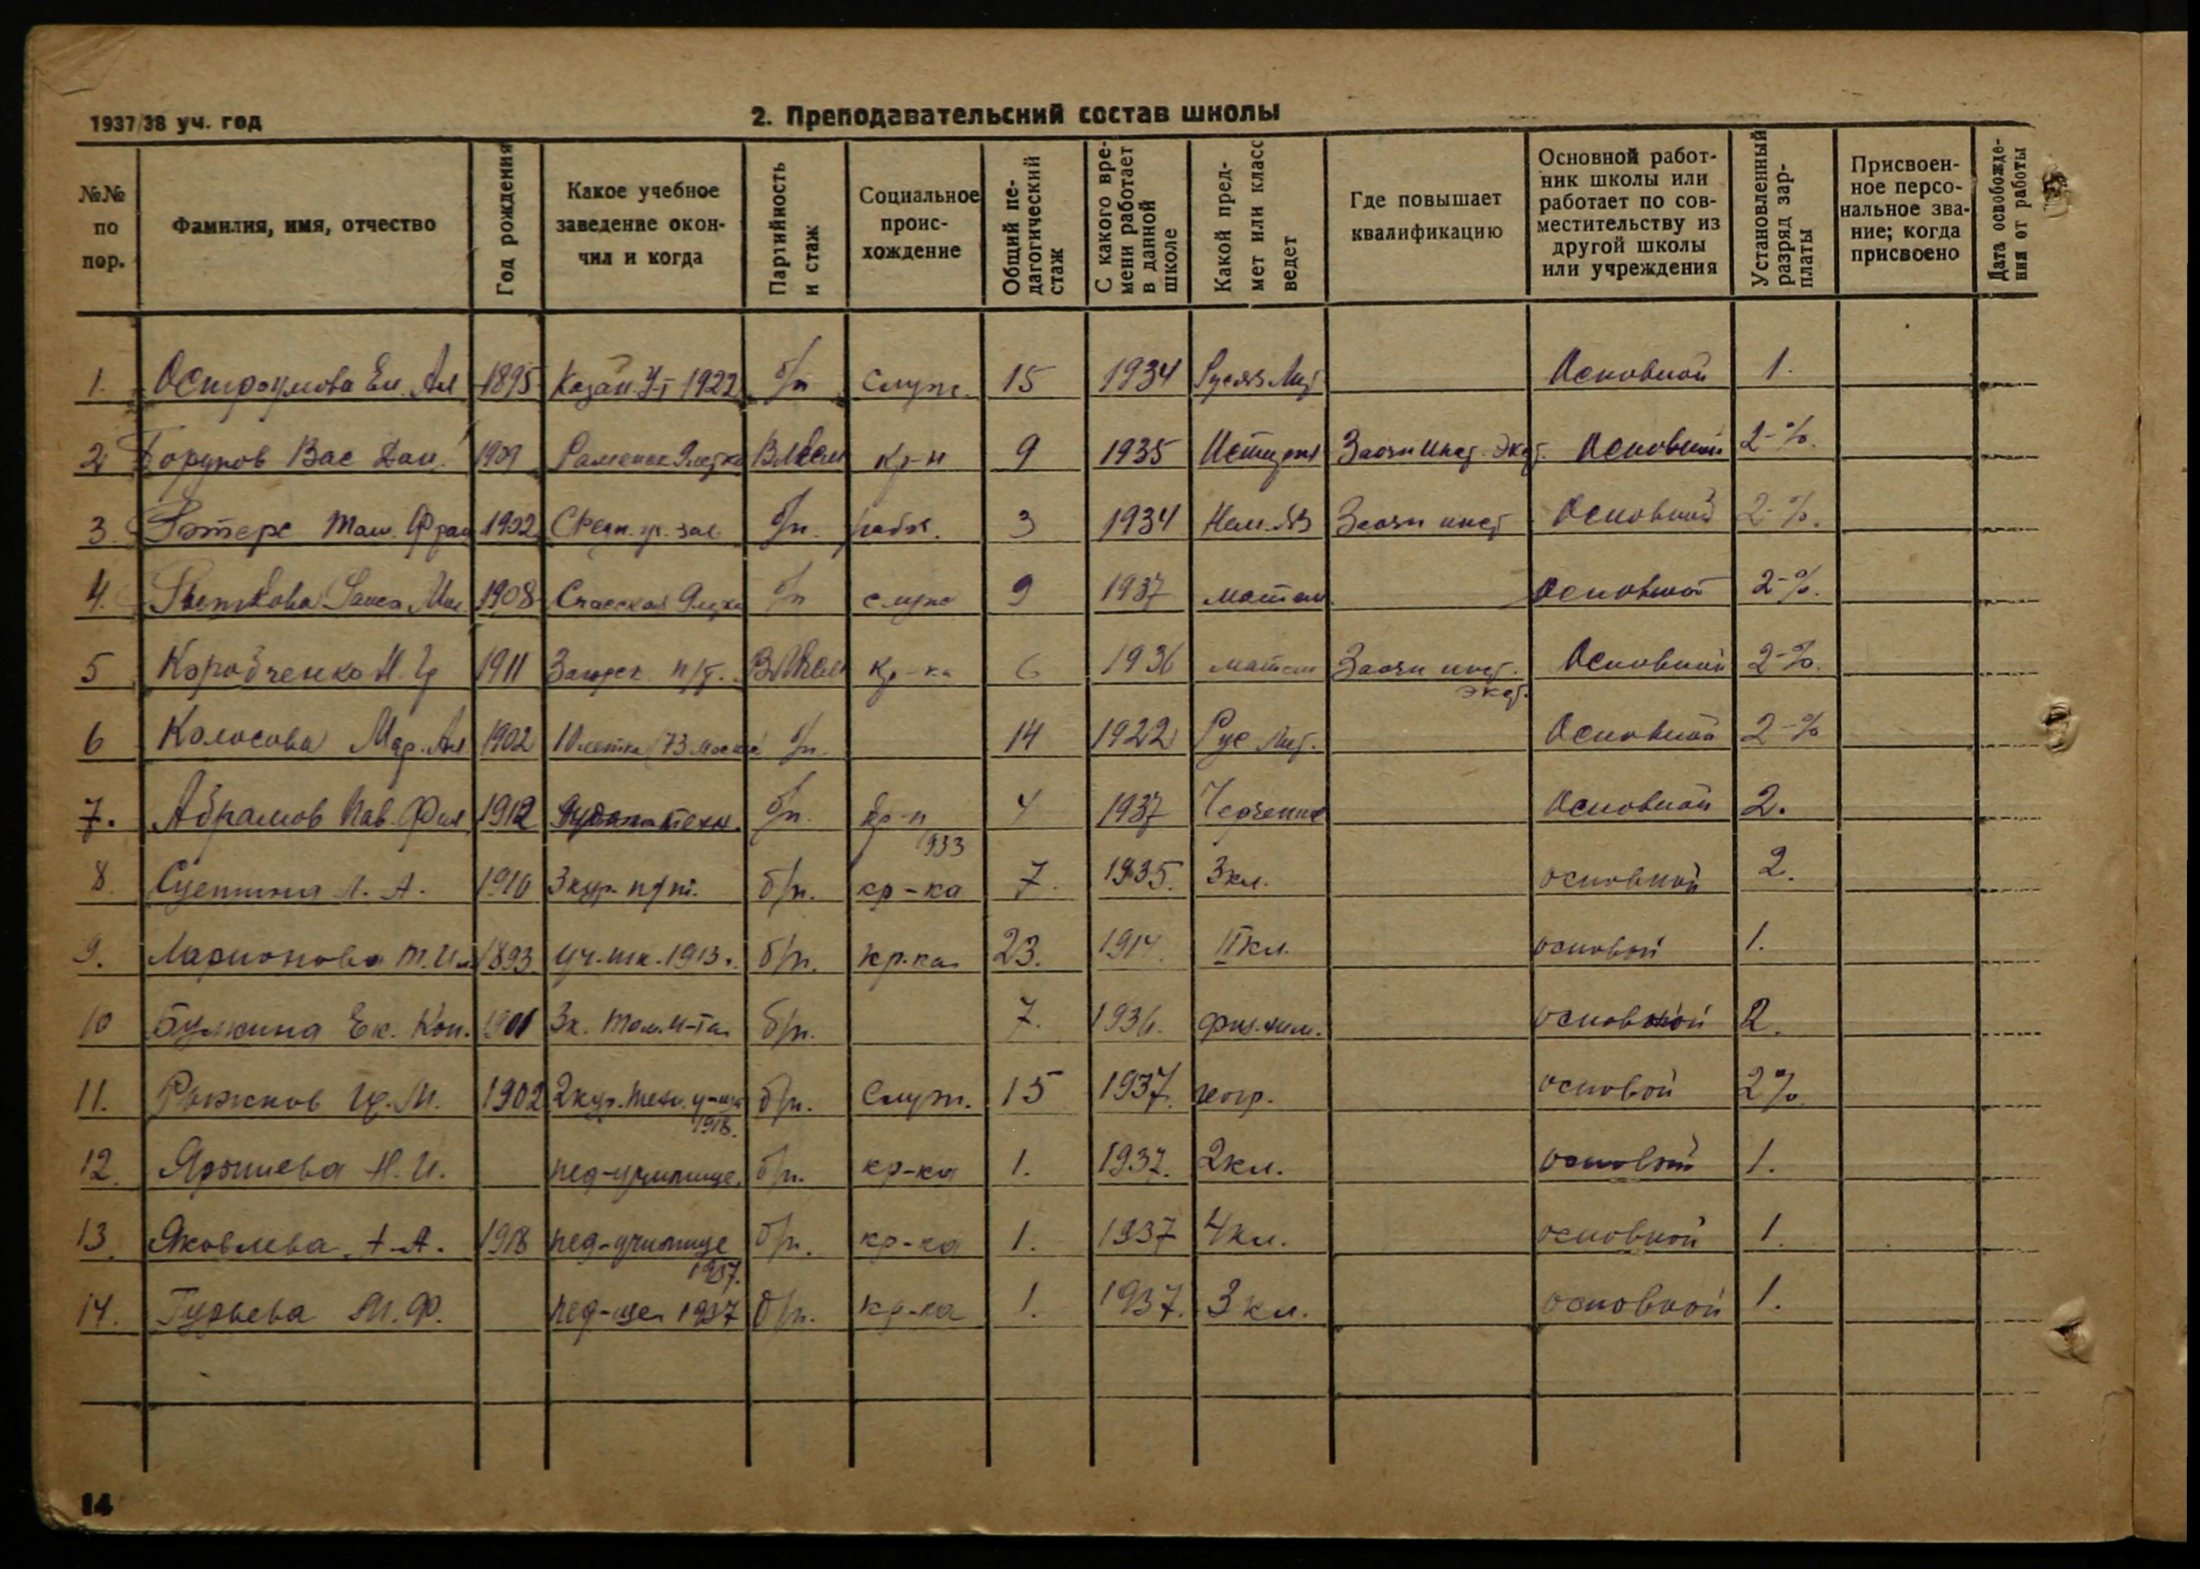 1937/38 уч. год
2. Преподавательский состав школы
№№ по пор.
Фамилия, имя, отчество
Год рождения
Какое учебное заведение окончил и когда
Партийность и стаж
Социальное проис-хождение
Общий пе-дагогический стаж
С какого вре-мени работает в данной школе
Какой пред-мет или класс ведет
Где повышает квалификацию
Основной работ-ник школы или работает по сов-местительству из другой школы или учреждения
Установленный разряд зар-платы
Присвоен-ное персо-нальное зва-ние; когда присвоено
Дата освобожде-ния от работы
1. Остроумова Ел. Ал 1895 Казан. У-т 1922 б/п служ. 15 1934 Русяз Лит Основной 1.
2 Вас Дан. 1909 ВЛКСМ кр-н 9 1935 История Заочн Инст. Основной 2-%.
3. 1902 б/п. рабоч. 3 1934 Нем. Яз Заочн инст Основной 2-%.
4. 1908 б/п служ 9 1937 матем Основной 2-%.
5 Коробченко 1911 Загорск. п/т. ВЛКСМ кр-ка 6 1936 матем Заочн инст. Основной 2-%.
6 Колосова Мар. Ал 1902 10 летка (73 Москва) б/п. 14 1922 Рус Лит. Основной 2-%
7. Абрамов Пав. Фил 1912 б/п. кр-н 4 1937 Черчение Основной 2.
933
8. Л. А. 1910 3 кур. п/т. б/п. кр-ка 7. 1935. 3 кл. основной 2.
9. Ларионова 1893 уч-шк. 1913 г. б/п. кр-ка 23. 1914. II кл. основой 1.
10 Булкина Ек. Кон. б/п. 7. 1936. физ. хим. основной 2.
11. Рыжков М. 1902 2 кур. б/п. служ. 15 1937. геогр. основой 2%.
1918.
12. Н. И. пед-училище, б/п. кр-ка 1. 1937. 2 кл. основой 1.
13. Яковлева А. А. 1918 пед-училище б/п. кр-ка 1. 1937 4 кл. основной 1.
1937.
14. Гурьева М. Ф. пед-ще 1937 б/п. кр-ка 1. 1937. 3 кл. основной 1.
14